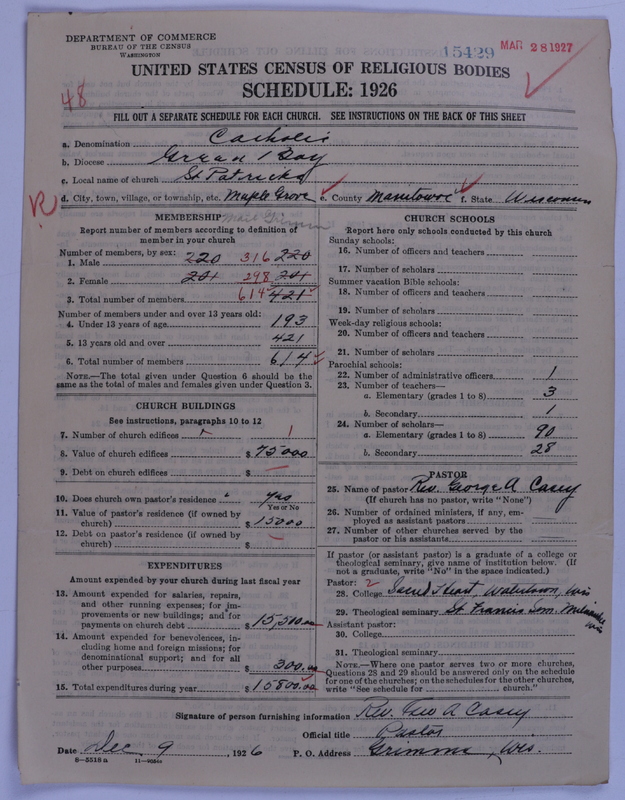 DEPARTMENT OF COMMERCE
BUREAU OF THE CENSUS
WASHINGTON
15429
MAR 28 1927
UNITED STATES CENSUS OF RELIGIOUS BODIES
SCHEDULE: 1926
48
FILL OUT A SEPARATE SCHEDULE FOR EACH CHURCH. SEE INSTRUCTIONS ON THE BACK OF THIS SHEET
a. Denomination Catholic
b. Diocese Green Bay
c. Local name of church St Patricks
R
d. City, town, village, or township, etc. Maple Grove e. County Manitowoc f. State Wisconsin
MEMBERSHIP
Report number of members according to definition of
member in your church
Number of members, by sex:
1. Male 220 316 220
2. Female 201 298 201
3. Total number of members 614 421
Number of members under and over 13 years old:
4. Under 13 years of age 193
5. 13 years old and over 421
6. Total number of members 614
NOTE.—The total given under Question 6 should be the
same as the total of males and females given under Question 3.
CHURCH BUILDINGS
See instructions, paragraphs 10 to 12
7. Number of church edifices 1
8. Value of church edifices $ 75000
9. Debt on church edifices $ —
10. Does church own pastor's residence yes
Yes or No
11. Value of pastor's residence (if owned by
church) $ 15000
12. Debt on pastor's residence (if owned by
church) $ —
EXPENDITURES
Amount expended by your church during last fiscal year
13. Amount expended for salaries, repairs,
and other running expenses; for improvements or new buildings; and for
payments on church debt $ 15,500.00
14. Amount expended for benevolences, including home and foreign missions; for
denominational support; and for all
other purposes $ 300.00
15. Total expenditures during year $ 15800.00
CHURCH SCHOOLS
Report here only schools conducted by this church
Sunday schools:
16. Number of officers and teachers
17. Number of scholars
Summer vacation Bible schools:
18. Number of officers and teachers
19. Number of scholars
Week-day religious schools:
20. Number of officers and teachers
21. Number of scholars
Parochial schools:
22. Number of administrative officers 1
23. Number of teachers—
a. Elementary (grades 1 to 8) 3
b. Secondary 1
24. Number of scholars—
a. Elementary (grades 1 to 8) 90
b. Secondary 28
PASTOR
25. Name of pastor Rev. George A Casey
(If church has no pastor, write "None")
26. Number of ordained ministers, if any, employed as assistant pastors
27. Number of other churches served by the
pastor or his assistants
If pastor (or assistant pastor) is a graduate of a college or
theological seminary, give name of institution below. (If
not a graduate, write "No" in the space indicated.)
Pastor: 2
28. College Sacred Heart, Watertown, Wis
29. Theological seminary St. Francis Sem. Milwaukee Wis
Assistant pastor:
30. College
31. Theological seminary
NOTE.—Where one pastor serves two or more churches,
Questions 28 and 29 should be answered only on the schedule
for one of the churches; on the schedules for the other churches,
write "See schedule for church."
Signature of person furnishing information Rev. Geo A Casey
Official title Pastor
Date Dec 9 1926 P. O. Address Grimms, Wis.
8—5518 a